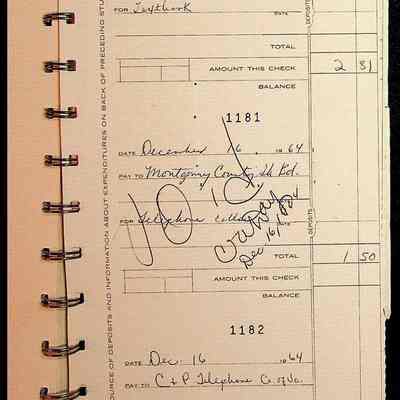 FOR Textbook DATE
DEPOSITS
TOTAL
AMOUNT THIS CHECK 2 81
BALANCE
1181
DATE December 16 1964
PAY TO Montgomery County
FOR Telephone
DATE
Dec 16/
DEPOSITS
TOTAL 1 50
AMOUNT THIS CHECK
BALANCE
1182
DATE Dec. 16 1964
PAY TO C & P Telephone Co. of Va.
OURCE OF DEPOSITS AND INFORMATION ABOUT EXPENDITURES ON BACK OF PRECEDING STU